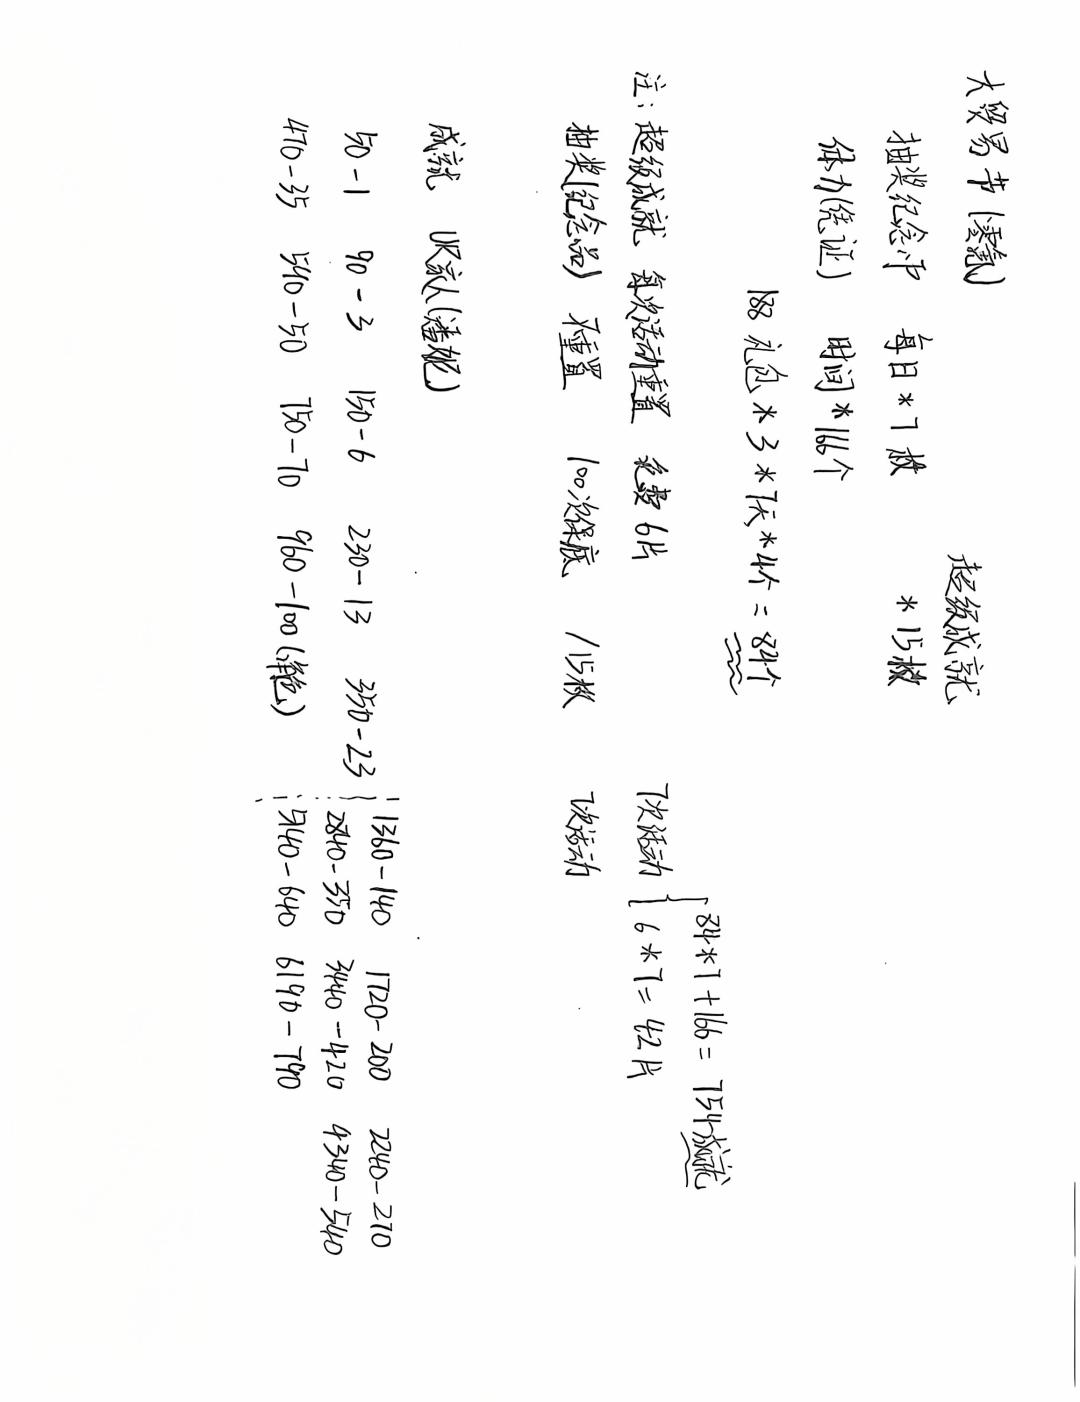 大贸易节（凌氪）
超级成就
抽奖纪念币 每日*7枚 *15枚
体力（凭证） 时间*166个
188礼包*3*7天*4个=84个
84*7+166=754成就
注：超级成就 每次活动重置 免费6片 7次活动 6*7=42片
抽奖（纪念品） 不重置 100次保底 /15枚 7次活动
成就 UR家人（潘妮）
50-1 90-3 150-6 230-13 350-23
470-35 590-50 750-70 960-100（锦色）
1360-140 1720-200 2240-270
2840-350 3440-420 4340-540
5140-640 6190-790